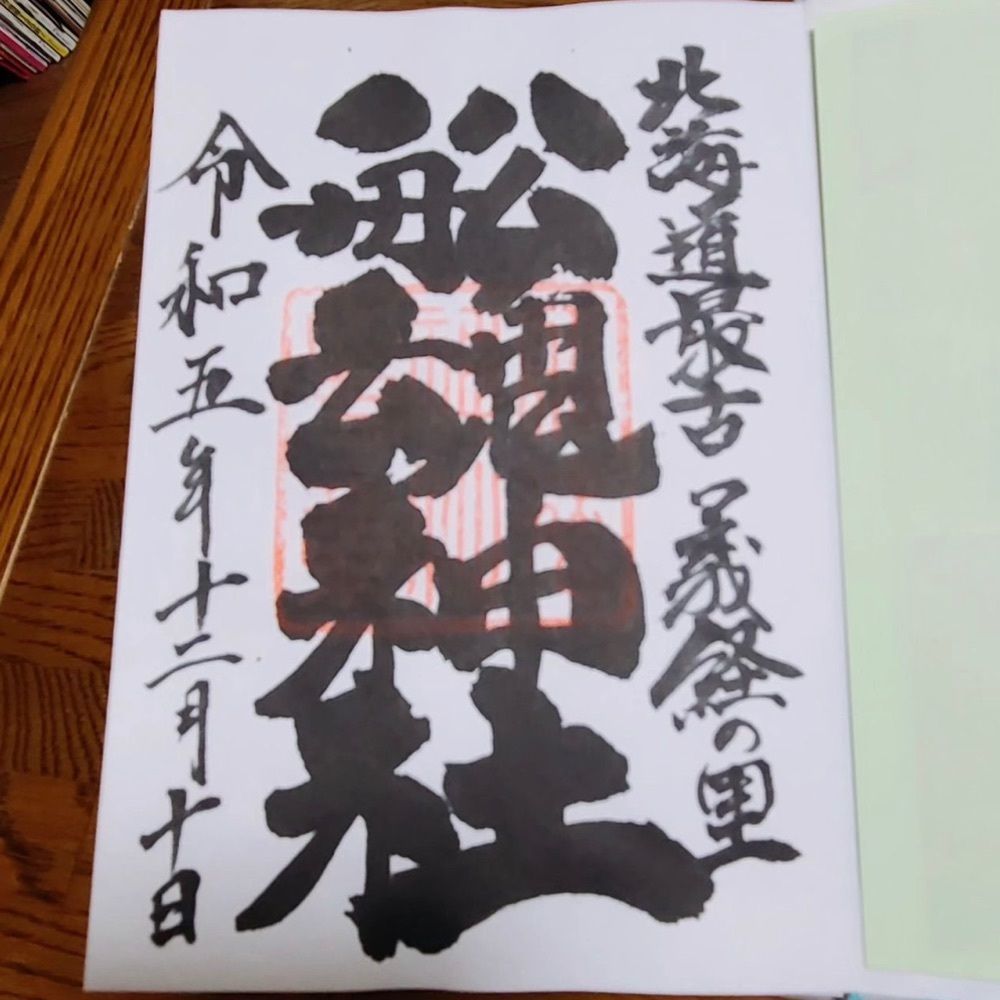 北海道最古 義経の里
船魂神社
令和五年十二月十日